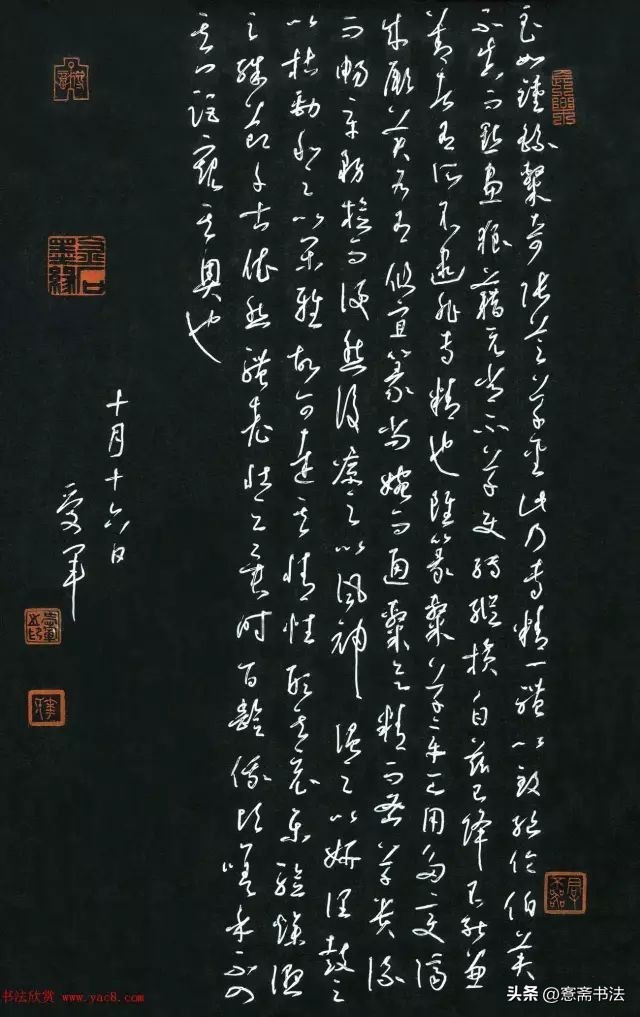 至如鍾繇隸奇張芝草聖此乃專精一體以致絕倫伯英
不真而點畫狼藉元常不草使轉縱橫自茲已降不能兼
善者有所不逮非專精也雖篆隸草章工用多變濟
成厥美各有攸宜篆尚婉而通隸欲精而密草貴流
而暢章務檢而便然後凜之以風神溫之以妍潤鼓之
以枯勁和之以閑雅故可達其情性形其哀樂驗燥濕
之殊節千古依然體老壯之異時百齡俄頃嗟乎不入
其門詎窺其奧也
十月十六日
金石墨緣
书法欣赏 www.yac8.com
头条 @愙斋书法